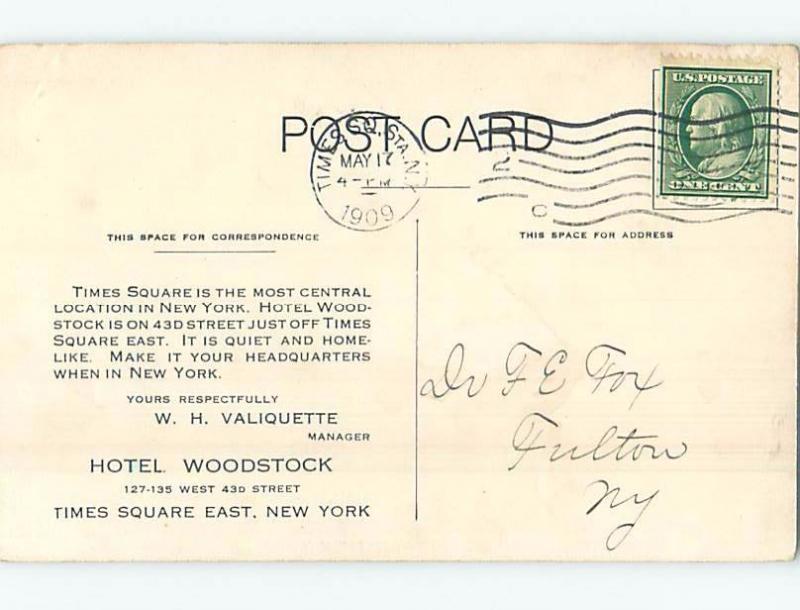 U.S. POSTAGE
POST CARD
TIMES SQ. STA. N.Y.
MAY 17
4-PM
1909
2
C
ONE CENT
THIS SPACE FOR CORRESPONDENCE
THIS SPACE FOR ADDRESS
TIMES SQUARE IS THE MOST CENTRAL
LOCATION IN NEW YORK. HOTEL WOOD-
STOCK IS ON 43D STREET JUST OFF TIMES
SQUARE EAST. IT IS QUIET AND HOME-
LIKE. MAKE IT YOUR HEADQUARTERS
WHEN IN NEW YORK.
YOURS RESPECTFULLY
W. H. VALIQUETTE
MANAGER
HOTEL WOODSTOCK
127-135 WEST 43D STREET
TIMES SQUARE EAST, NEW YORK
Dr F E Fox
Fulton
Ny